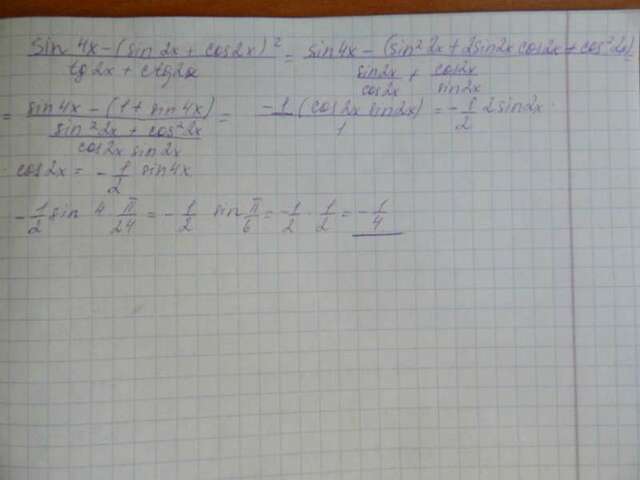 sin 4x - (sin 2x + cos 2x)² / tg 2x + ctg 2x = sin 4x - (sin² 2x + 2 sin 2x cos 2x + cos² 2x) / sin 2x / cos 2x + cos 2x / sin 2x =
= sin 4x - (1 + sin 4x) / sin² 2x + cos² 2x / cos 2x sin 2x = -1 (cos 2x sin 2x) / 1 = -1/2 2 sin 2x
cos 2x = -1/2 sin 4x
-1/2 sin 4 π/24 = -1/2 sin π/6 = -1/2 · 1/2 = -1/4